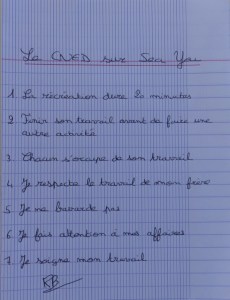 Le CNED sur Sea You
1 La récréation dure 20 minutes
2 Finir son travail avant de faire une
autre activité
3 Chacun s'occupe de son travail
4 Je respecte le travail de mon frère
5 Je ne bavarde pas
6 Je fais attention a mes affaires
7 Je soigne mon travail
KB